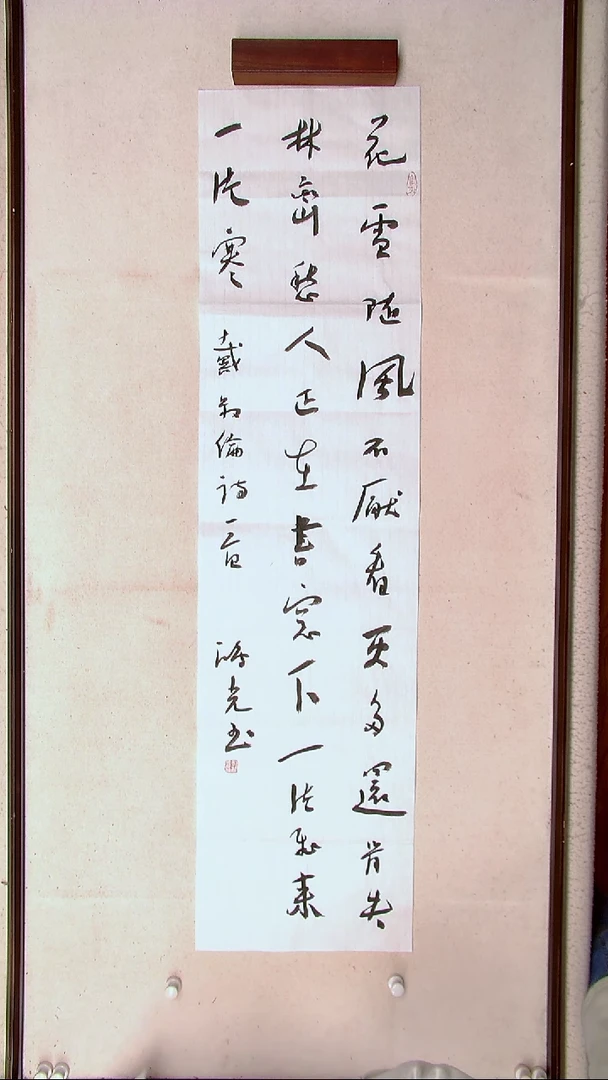 花雪随風不厭看更多還肯失
林峦愁人正在書窓下一片飛来
一片寒 戴叔倫诗一首 光书